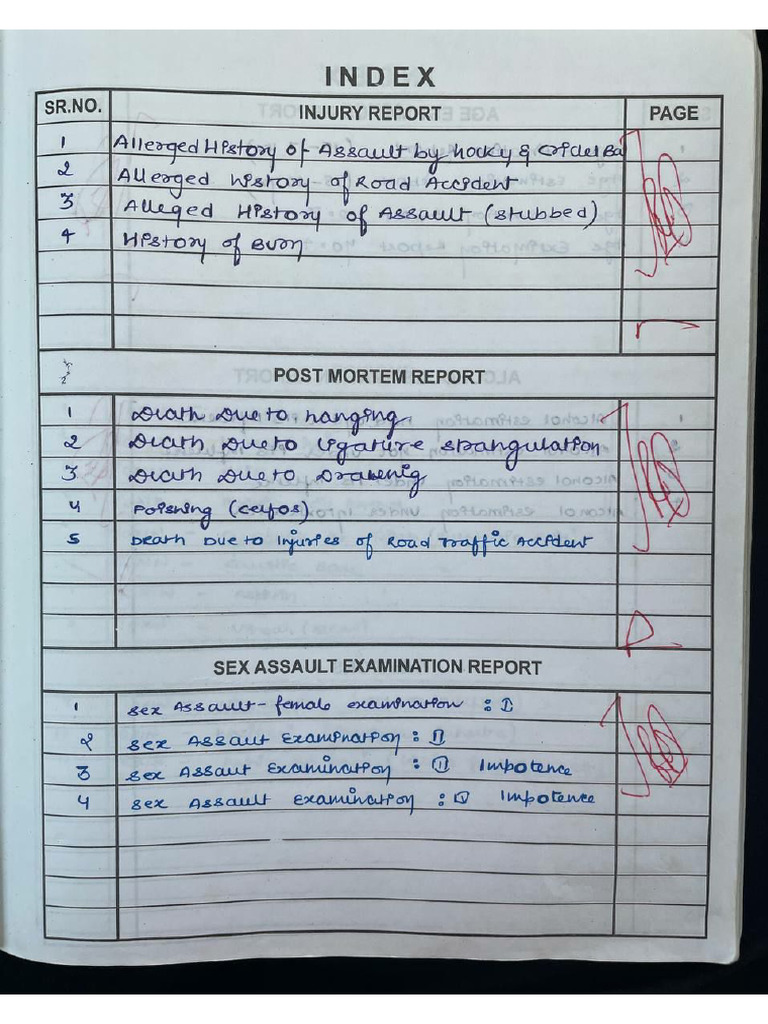 INDEX
SR.NO. INJURY REPORT PAGE
1 Allerged History of Assault by hocky &
2 Allerged history of Road Accident
3 Alleged History of Assault (stubbed)
4 History of Burn
POST MORTEM REPORT
1 Death Due to hanging
2 Death Due to ligature strangulation
3 Death Due to Drawnig
4 Poisning (celfos)
5 Death Due to Injuries of Road Traffic Accident
SEX ASSAULT EXAMINATION REPORT
1 Sex Assault - female examination : I
2 Sex Assault Examination : II
3 Sex Assaut Examination : II Impotence
4 Sex Assault Examination : Impotence